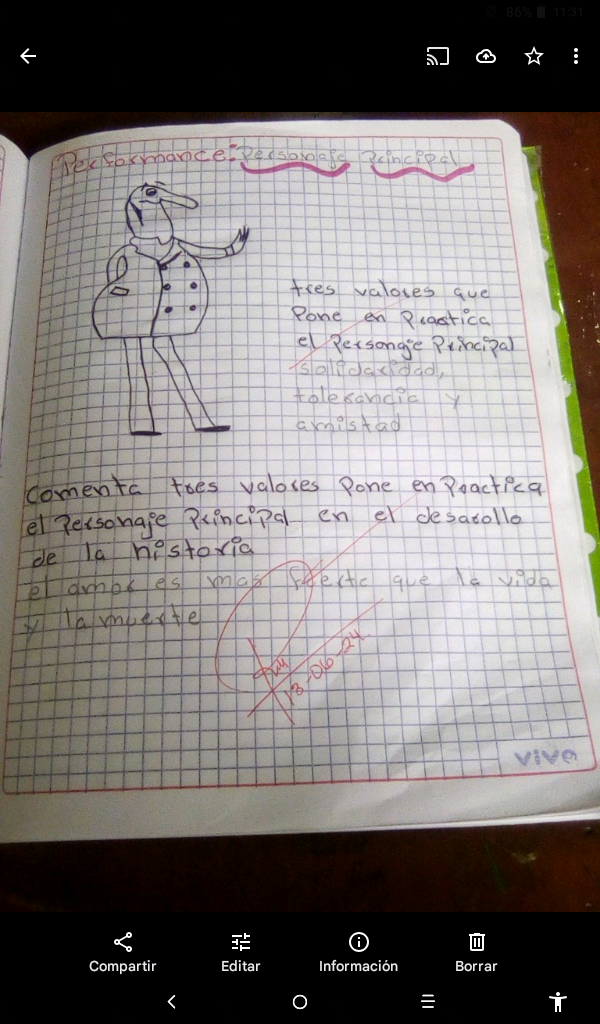 86% 11:31
Performance: Personaje Principal
tres valores que
Pone en Practica
el Personaje Principal
solidaridad,
tolerancia y
amistad
Comenta tres valores Pone en Practica
el Personaje Principal en el desarollo
de la historia
el amor es mas fuerte que la vida
y la muerte
13-06-24
viva
Compartir Editar Información Borrar